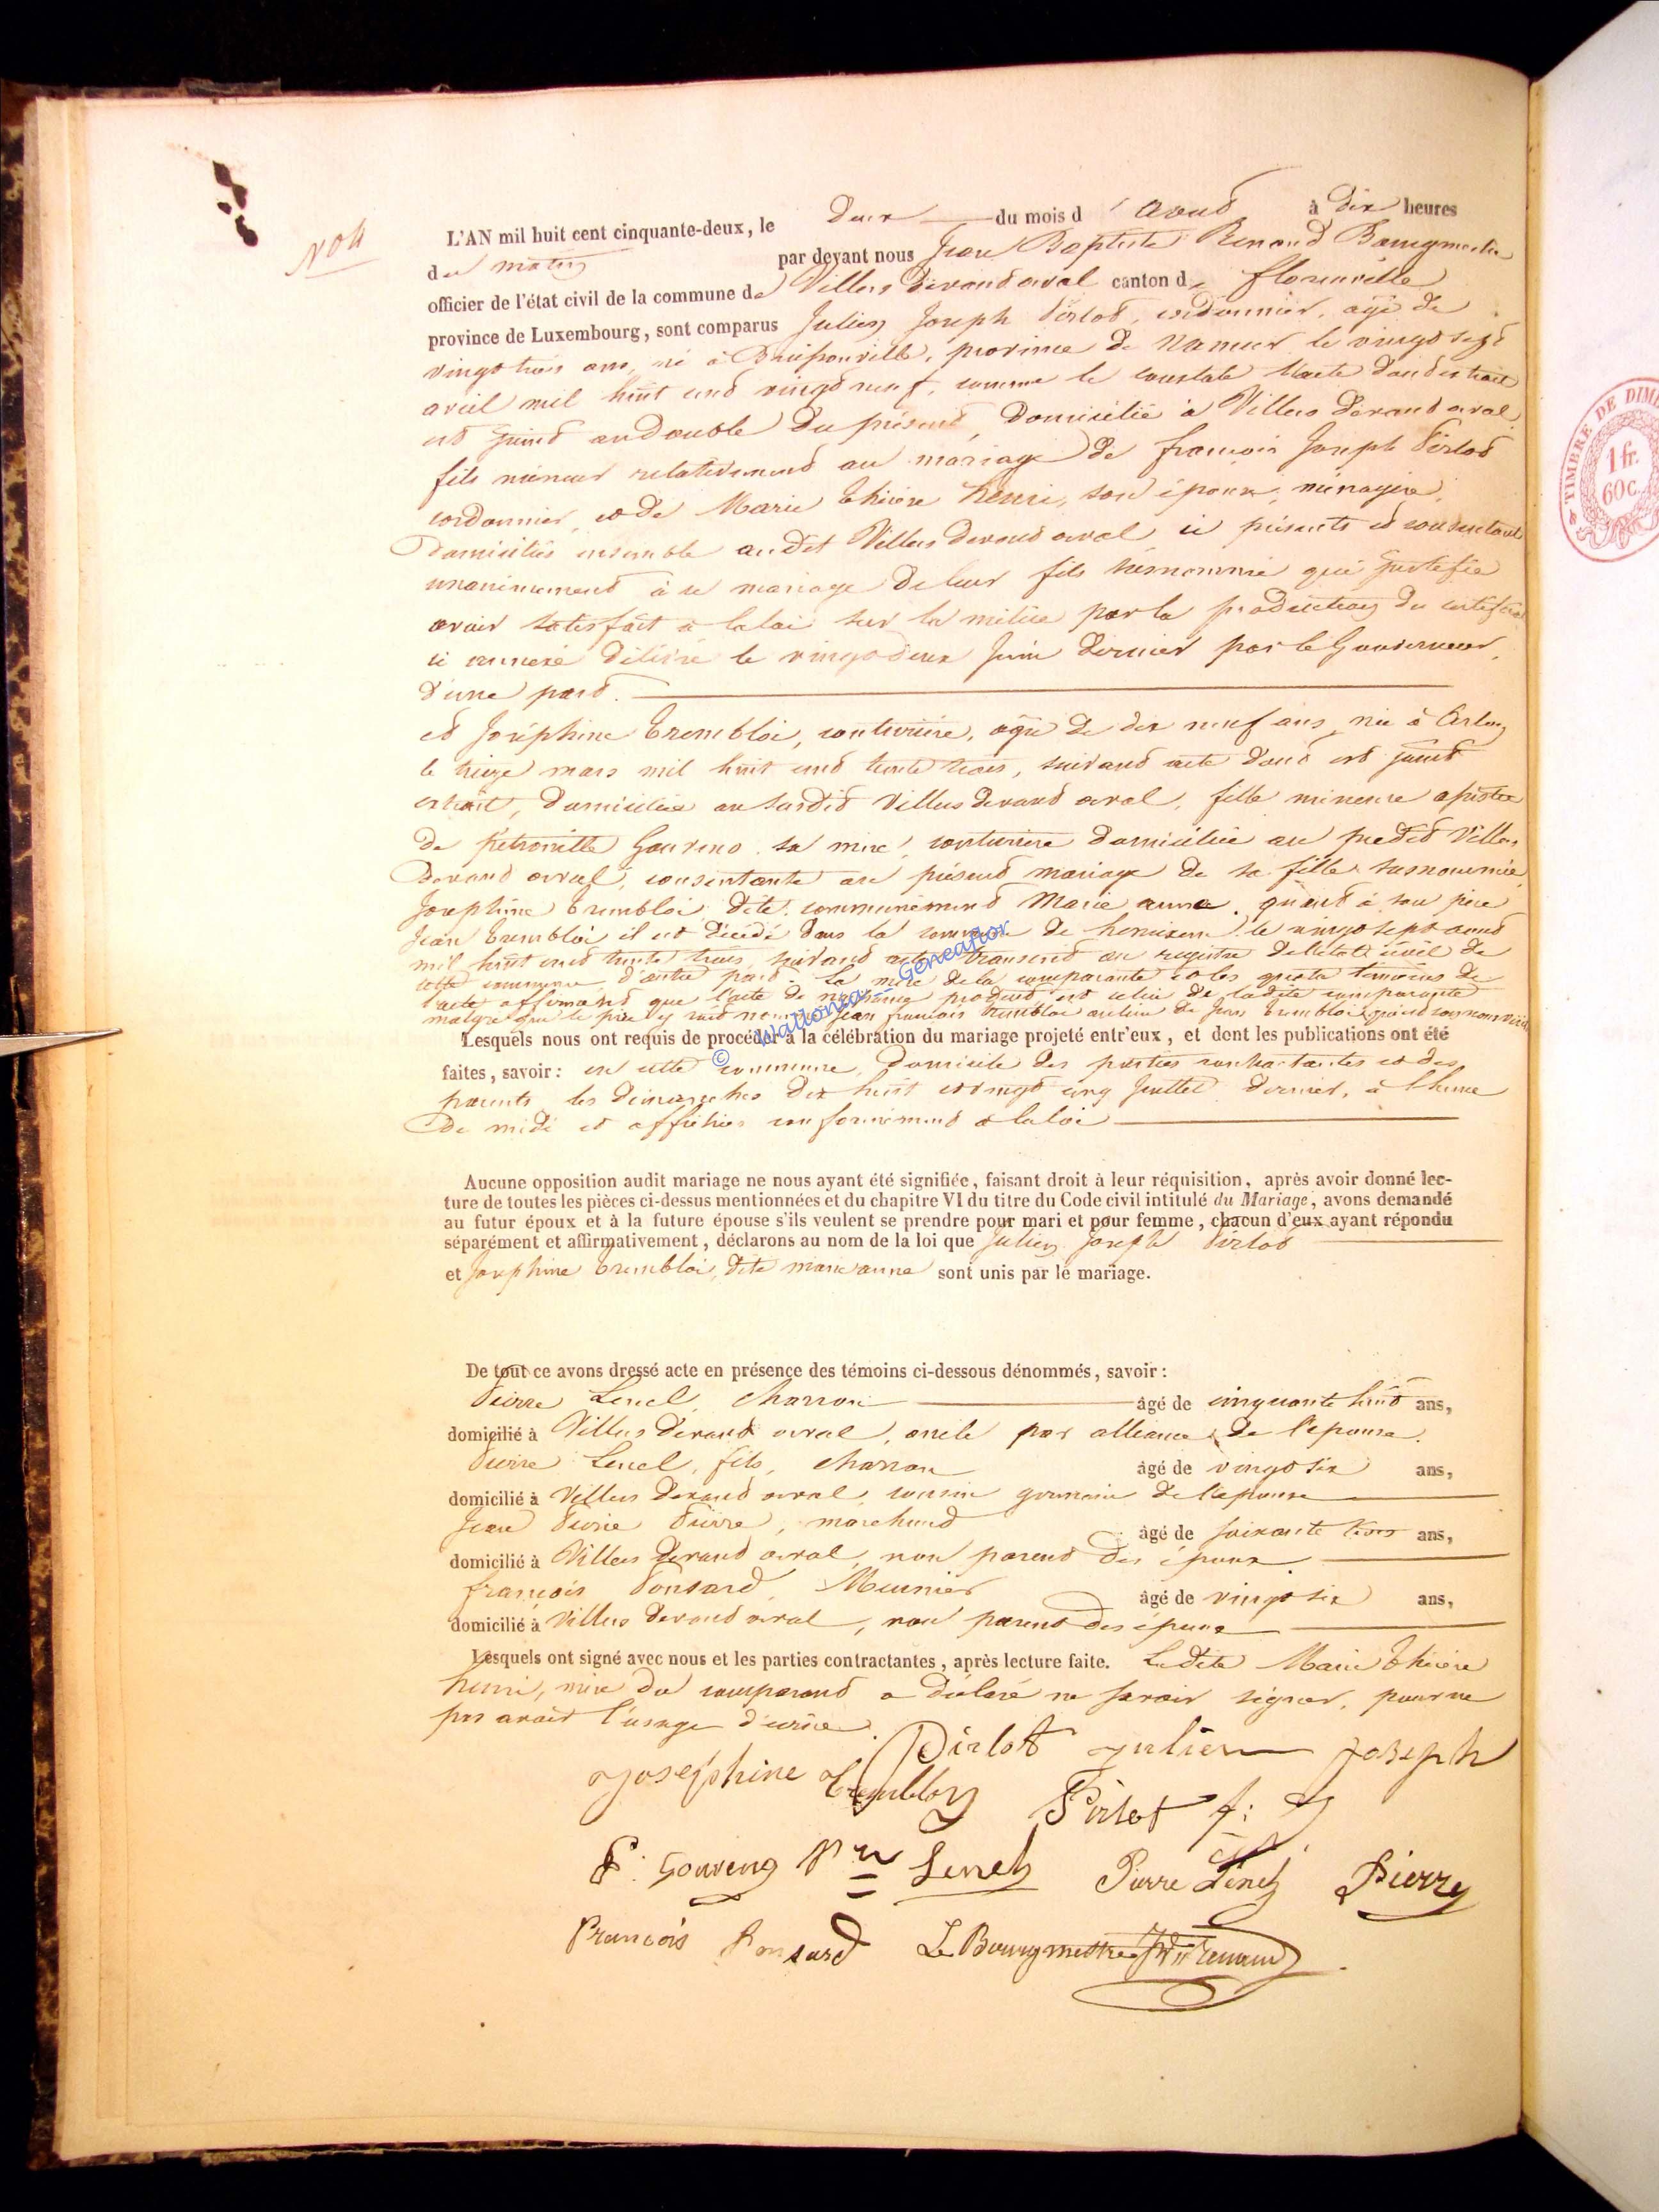 N° 4
L'AN mil huit cent cinquante-deux, le deux du mois d'aout à dix heures
du matin par devant nous Jean Baptiste Renaud Bourgmestre
officier de l'état civil de la commune de Villers devant orval canton de florenville
province de Luxembourg, sont comparus Julien Joseph Pirlot, cordonnier, agé de
vingt trois ans, né à province de Namur le vingt sept
avril mil huit cent vingt neuf, comme le constate l'acte dont extrait
est joint au double du présent, Domicilié à Villers devant orval,
fils mineur relativement au mariage de françois Joseph Pirlot
cordonnier, et de Marie thérèse henri, son épouse, ménagère,
Domiciliés ensemble audit Villers devant orval ici présents et consentant
unanimement à ce mariage de leur fils susnommé qui justifie
avoir satisfait à la loi sur la milice par la production du certificat
ci annexé délivré le vingt deux Juin dernier par le Gouverneur,
d'une part.
et Joséphine trembloi, couturière, agée de dix neuf ans, née à Arlon
le treize mars mil huit cent trente trois, suivant acte dont est joint
extrait, domiciliée au susdit Villers devant orval, fille mineure assistée
de pétronille Goureno sa mère, couturière domiciliée au predit Villers
Devant orval, consentante au présent mariage de sa fille susnommée
Josephine trembloi dite communément Marie anne. quant à son père
Jean trembloi il est décédé dans la commune de le vingt sept aout
mil huit cent trente trois, suivant acte transcrit au registre de l'état civil de
cette commune d'autre part. La mère de la comparante et les quatre témoins de
l'acte affirmant que l'acte de naissance produit est celui de ladite comparante
malgré que le père y soit nommé Jean françois trembloi au lieu de Jean trembloi
© Wallonia - Geneaflor
Lesquels nous ont requis de procéder à la célébration du mariage projeté entr'eux, et dont les publications ont été
faites, savoir: en cette commune, domicile des parties contractantes et des
parents les dimanches dix huit et vingt cinq Juillet dernier, à l'heure
de midi et affichées conformément à la loi
Aucune opposition audit mariage ne nous ayant été signifiée, faisant droit à leur réquisition, après avoir donné lec-
ture de toutes les pièces ci-dessus mentionnées et du chapitre VI du titre du Code civil intitulé du Mariage, avons demandé
au futur époux et à la future épouse s'ils veulent se prendre pour mari et pour femme, chacun d'eux ayant répondu
séparément et affirmativement, déclarons au nom de la loi que Julien Joseph Pirlot
et Josephine trembloi, dite marie anne sont unis par le mariage.
De tout ce avons dressé acte en présence des témoins ci-dessous dénommés, savoir:
Pierre Lenel, charron âgé de cinquante huit ans,
domicilié à Villers devant orval, oncle par alliance de l'épouse.
Pierre Lenel, fils, charron âgé de vingt six ans,
domicilié à Villers devant orval, cousin germain de l'épouse
Jean Pierre Pierre, marchand âgé de soixante trois ans,
domicilié à Villers devant orval, non parent des époux
françois Ponsard, Meunier âgé de vingt six ans,
domicilié à Villers devant orval, non parent des époux
Lesquels ont signé avec nous et les parties contractantes, après lecture faite. Ladite Marie thérèse
henri, mère du comparant a déclaré ne savoir signer, pour ne
pas avoir l'usage d'écrire.
Pirlot Julien Joseph
Joséphine Trembloy Pirlot f: J
P. Goureng Pre Lenel Pierre Lenel Pierre
François Ponsard Le Bourgmestre JBte Renaud
TIMBRE DE DIME
1 fr.
60c.